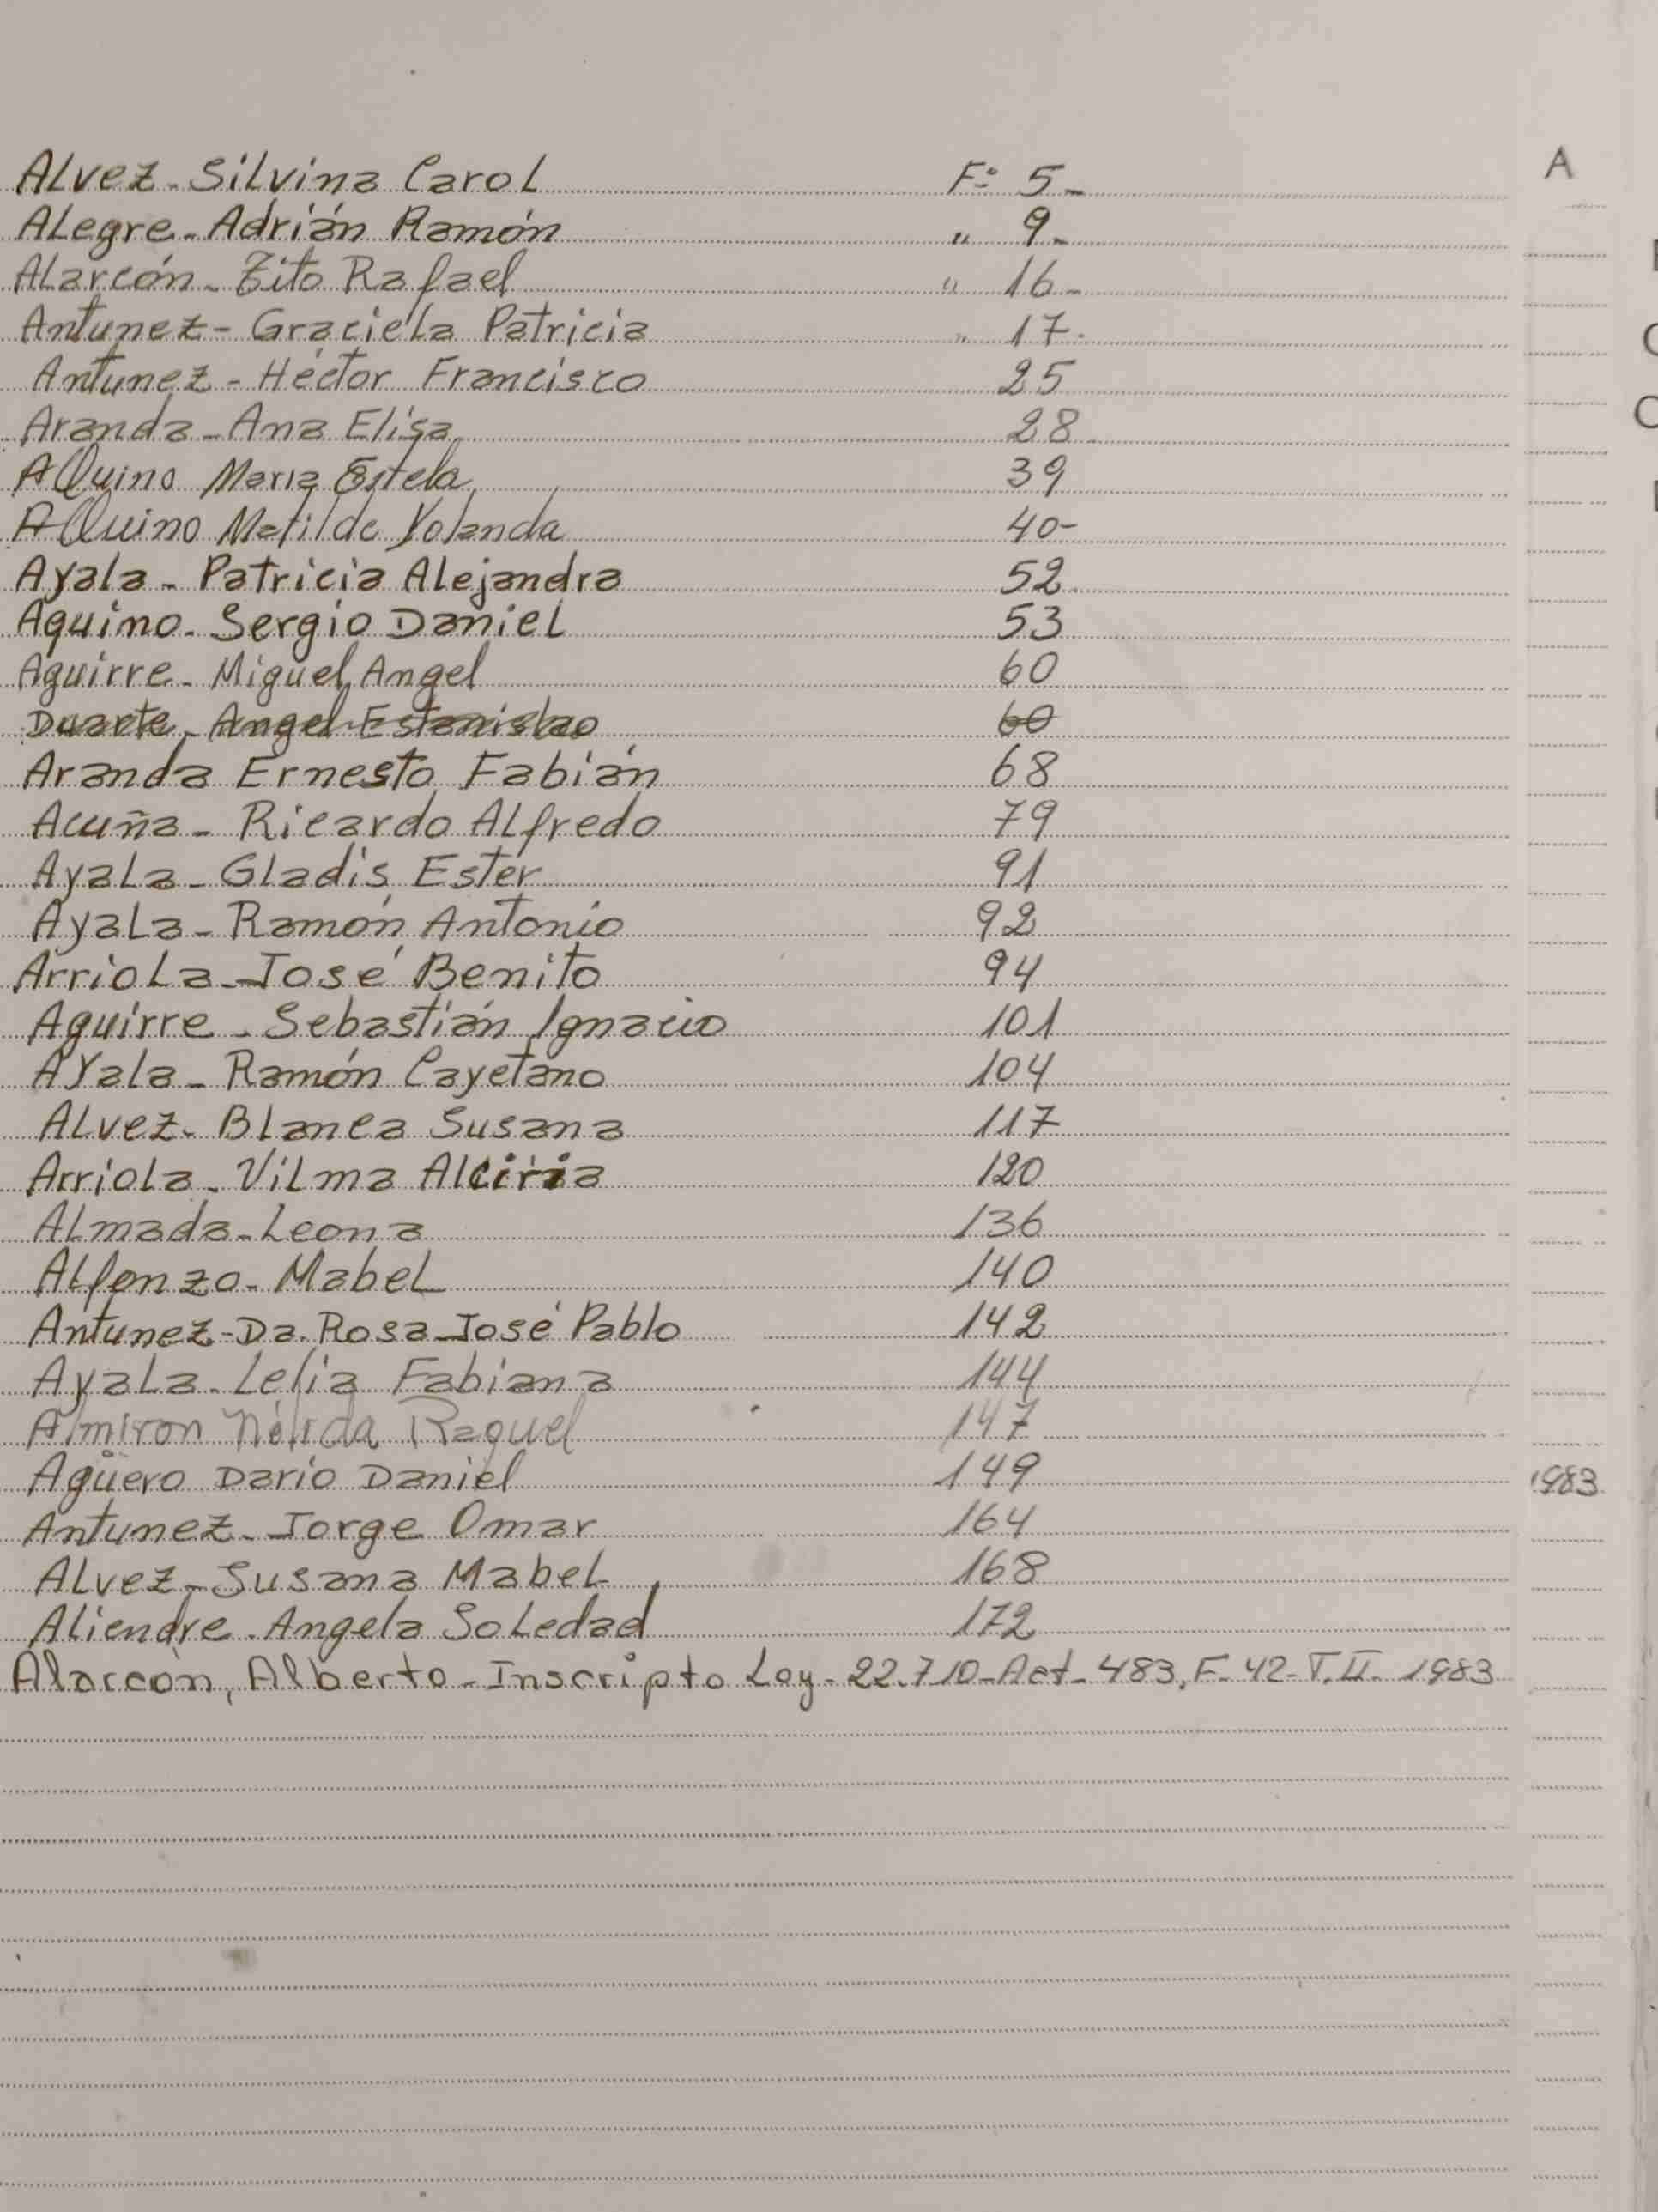 Alvez - Silvina Carol F: 5 - A
Alegre - Adrián Ramón " 9 -
Alarcón - Zito Rafael " 16 -
Antunez - Graciela Patricia " 17 -
Antunez - Héctor Francisco 25
Aranda - Ana Elisa 28
AQuino Maria Estela 39
AQuino Matilde Yolanda 40 -
Ayala - Patricia Alejandra 52
Aquino - Sergio Daniel 53
Aguirre - Miguel Angel 60
Duarte - Angel Estanislao 60
Aranda Ernesto Fabián 68
Acuña - Ricardo Alfredo 79
Ayala - Gladis Ester 91
Ayala - Ramón Antonio 92
Arriola - José Benito 94
Aguirre - Sebastián Ignacio 101
Ayala - Ramón Cayetano 104
Alvez - Blanca Susana 117
Arriola - Vilma 120
Almada - Leona 136
Alfonzo - Mabel 140
Antunez - Da Rosa José Pablo 142
Ayala - Lelia Fabiana 144
Almiron Nélida Raquel 147
Agüero Dario Daniel 149 1983
Antunez - Jorge Omar 164
Alvez - Susana Mabel 168
Aliendre - Angela Soledad 172
Alarcón, Alberto - Inscripto Ley - 22.710 - Act - 483, F - 42 - T. II - 1983